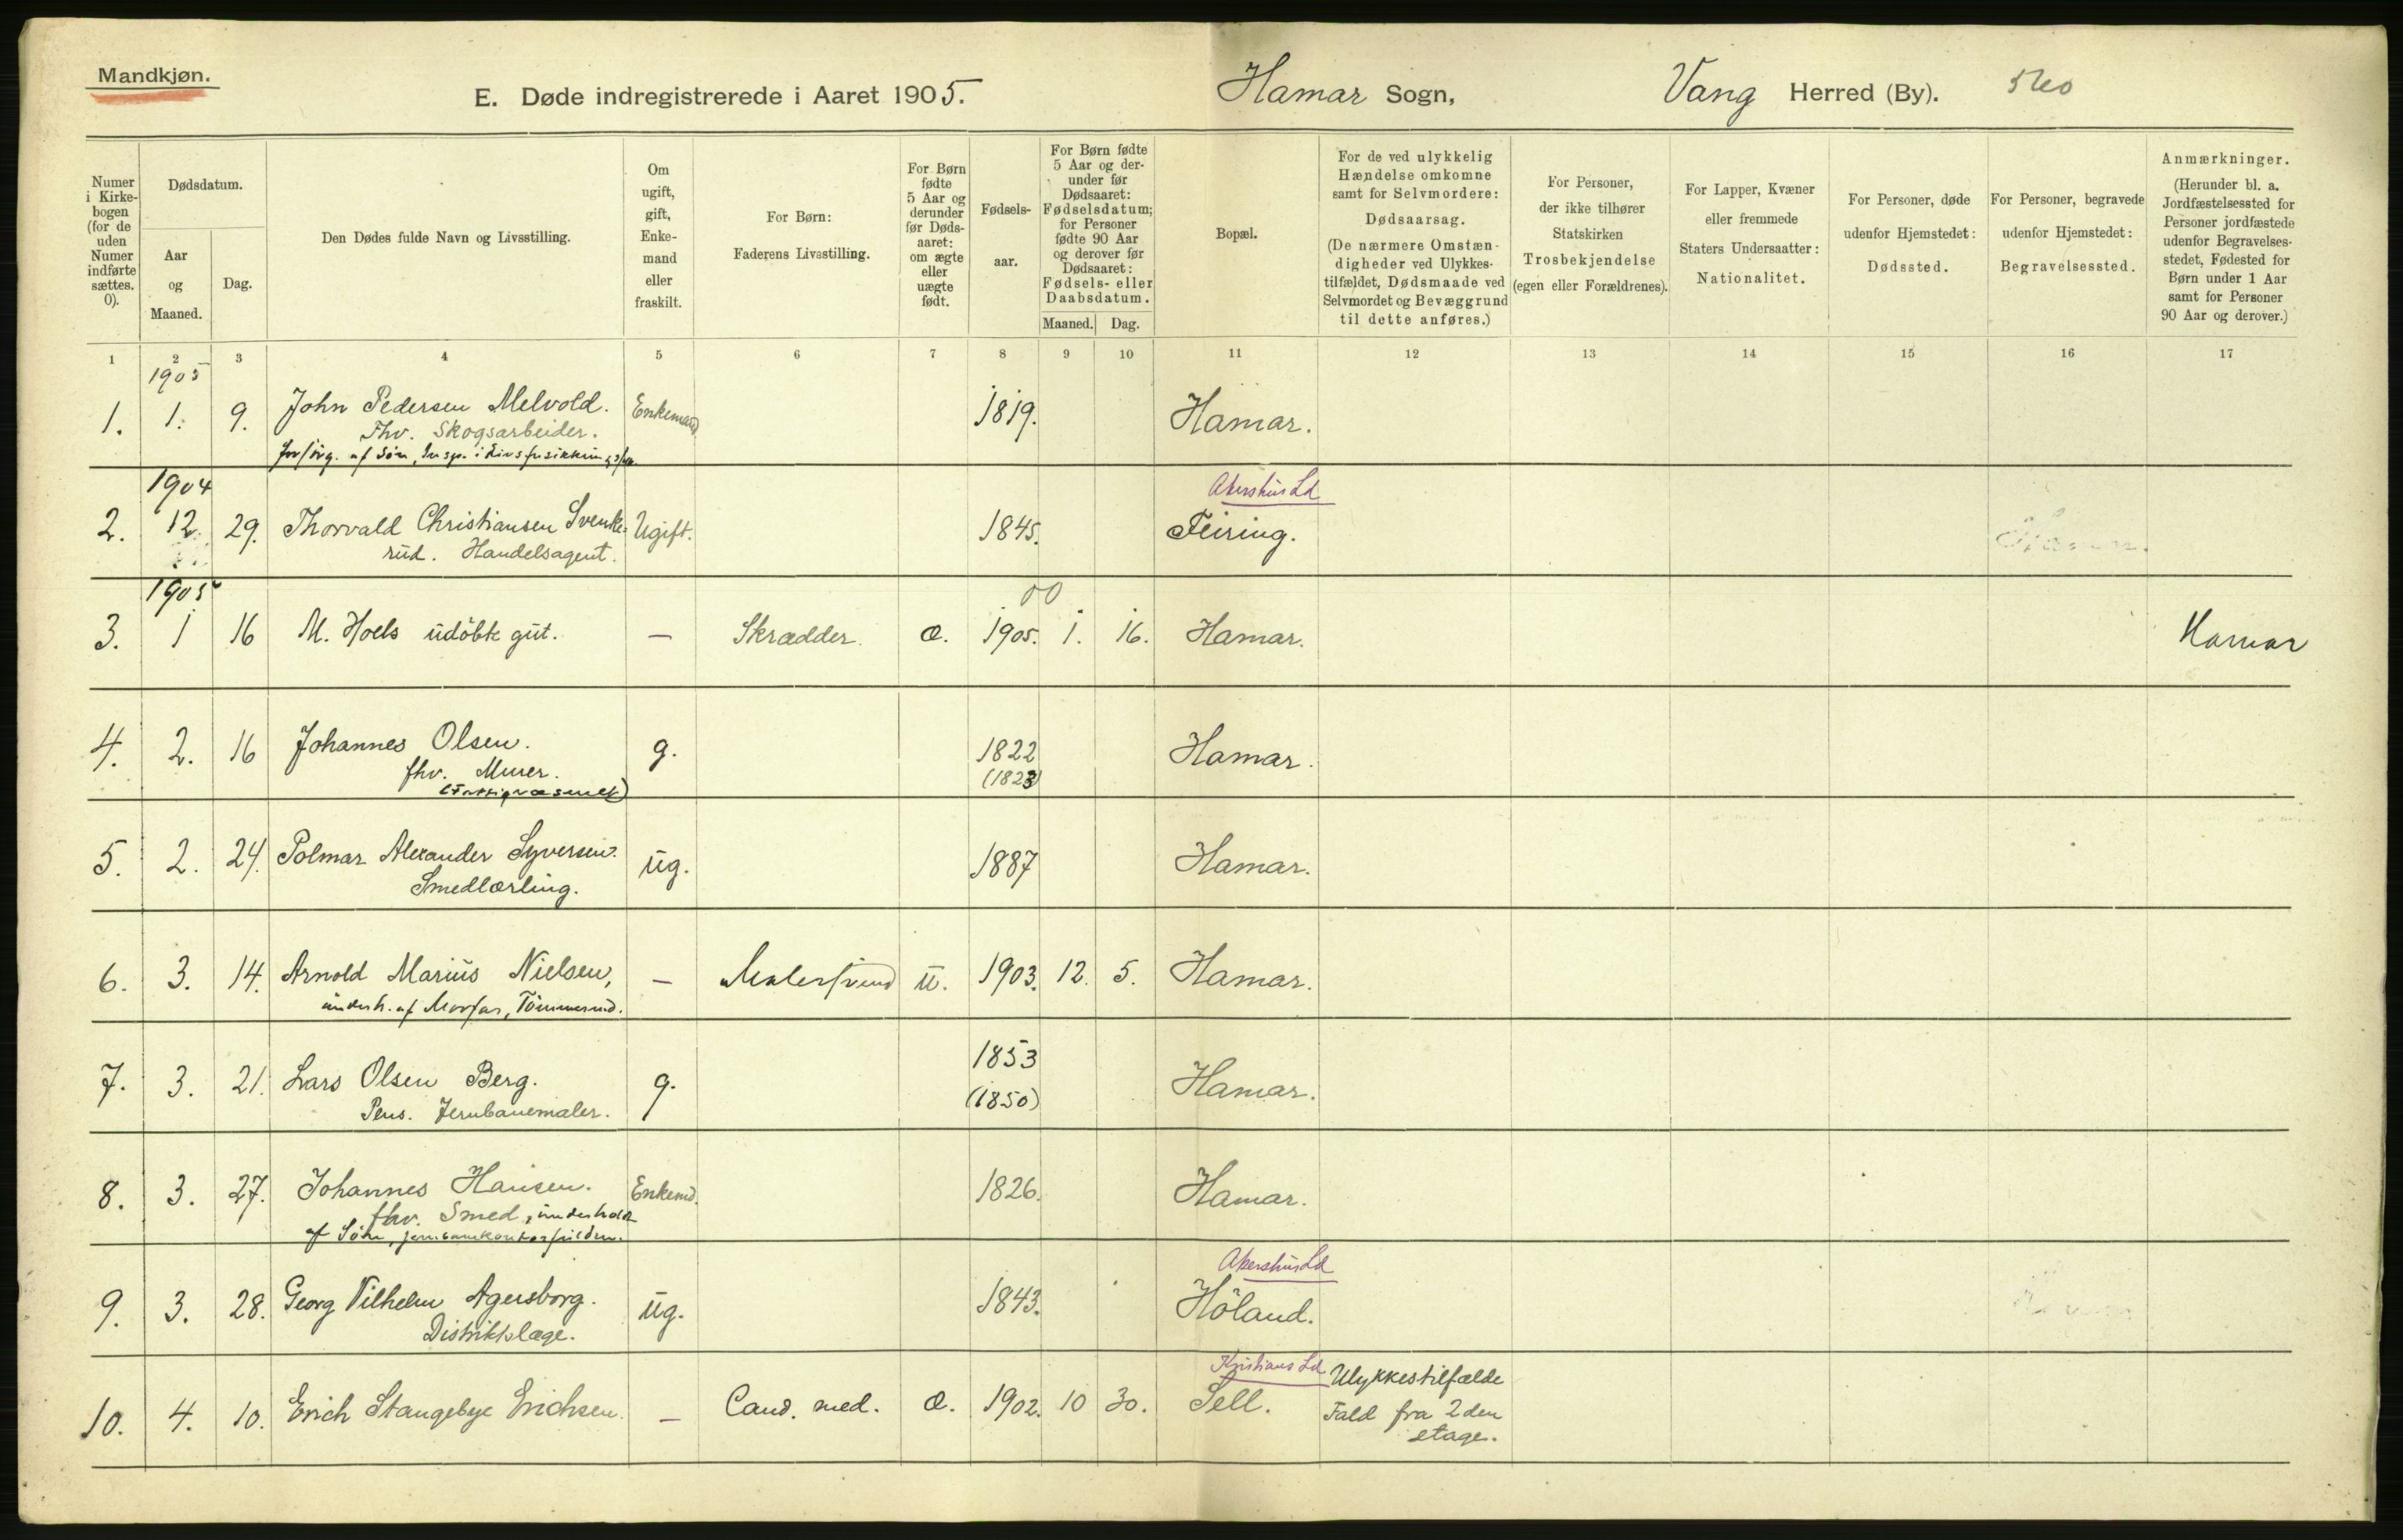 Mandkjøn.
E. Døde indregistrerede i Aaret 1905.
Hamar Sogn,
Vang Herred (By).
Numer i Kirke-bogen (for de uden Numer indførte sættes. 0).
Dødsdatum.
Aar og Maaned.
Dag.
Den Dødes fulde Navn og Livsstilling.
Om ugift, gift, Enke-mand eller fraskilt.
For Børn:
Faderens Livsstilling.
For Børn fødte 5 Aar og derunder før Døds-aaret: om ægte eller uægte født.
Fødsels-aar.
For Børn fødte 5 Aar og der-under før Dødsaaret: Fødselsdatum; for Personer fødte 90 Aar og derover før Dødsaaret: Fødsels- eller Daabsdatum.
Maaned.
Dag.
Bopæl.
For de ved ulykkelig Hændelse omkomne samt for Selvmordere:
Dødsaarsag.
(De nærmere Omstæn-digheder ved Ulykkes-tilfældet, Dødsmaade ved Selvmordet og Bevæggrund til dette anføres.)
For Personer, der ikke tilhører Statskirken
Trosbekjendelse
(egen eller Forældrenes).
For Lapper, Kvæner eller fremmede Staters Undersaatter:
Nationalitet.
For Personer, døde udenfor Hjemstedet:
Dødssted.
For Personer, begravede udenfor Hjemstedet:
Begravelsessted.
Anmærkninger.
(Herunder bl. a. Jordfæstelsessted for Personer jordfæstede udenfor Begravelses-stedet, Fødested for Børn under 1 Aar samt for Personer 90 Aar og derover.)
1 2 3 4 5 6 7 8 9 10 11 12 13 14 15 16 17
1905
1. 1. 9. John Pedersen Melvold. Enkemand 1819. Hamar.
Fhv. Skogsarbeider.
forsörg. af Sön, Insp. i
1904
Akershus Ld
2. 12. 29. Thorvald Christiansen Svenke= Ugift. 1845. Feiring.
rud. Handelsagent.
1905
00
3. 1 16 M. Hoels udöbte gut. — Skrædder. Æ. 1905. 1. 16. Hamar. Hamar
4. 2. 16 Johannes Olsen. g. 1822 Hamar.
fhv. Murer. (1823)
(Fattigvæsenet)
5. 2. 24. Polmar Alexander Syversen. ug. 1887 Hamar.
Smedlærling.
6. 3. 14. Arnold Marius Nielsen, — Malersvend u. 1903. 12. 5. Hamar.
underh. af Morfar, Tömmermd.
7. 3. 21. Lars Olsen Berg. g. 1853 Hamar.
Pens. Jernbanemaler. (1850)
8. 3. 27. Johannes Hansen. Enkemd. 1826. Hamar.
fhv. Smed, underholdt
af Sön,
Akershus Ld
9. 3. 28. Georg Vilhelm Agersborg. ug. 1843. Höland.
Distriktslæge.
Kristians Ld Ulykkestilfælde
10. 4. 10. Erich Stangebye Erichsen. — Cand. med. Æ. 1902. 10 30. Sell. Fald fra 2den
etage.